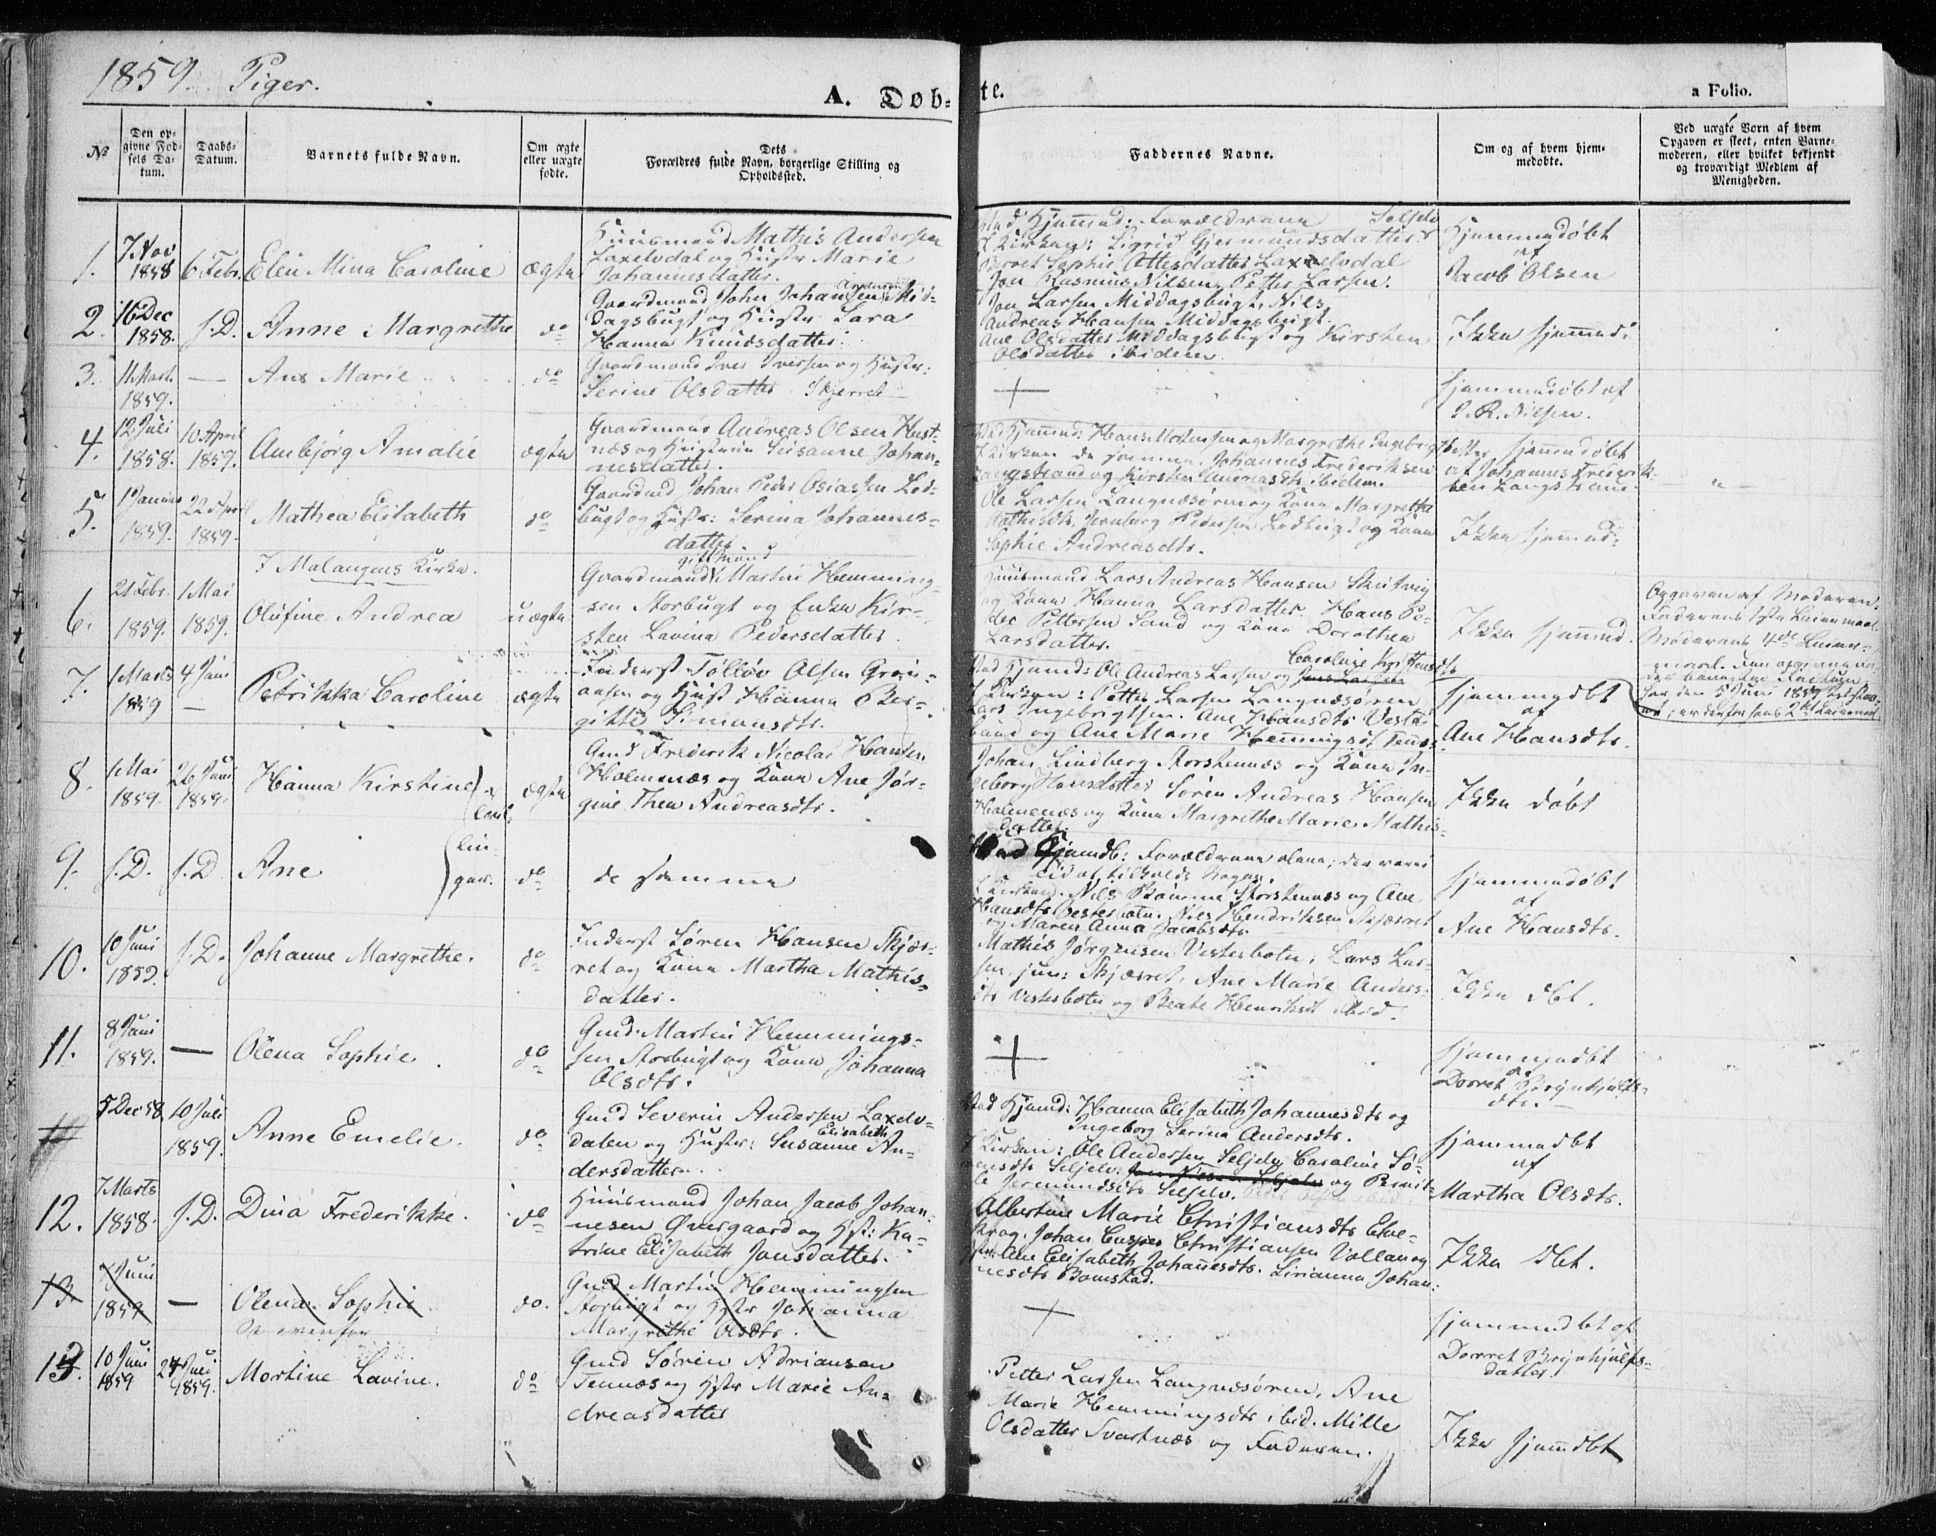 1859. Piger.
A. Døb-
te.
a Folio.
No
Den opgivne Fødsels Datum.
Daabs-Datum.
Barnets fulde Navn.
Om ægte eller uægte fødte.
Dets Forældres fulde Navn, borgerlige Stilling og Opholdssted.
Faddernes Navne.
Om og af hvem hjemmedøbte.
Ved uægte Børn af hvem Opgaven er skeet, enten Barnemoderen, eller hvilket bekjendt og troværdigt Medlem af Menigheden.
1.
7 Nov 1858
6 Febr.
Elen Mina Caroline
ægte
Huusmand Mathis Andersen
Laxelvdal og Hustr Marie
Johannesdatter.
Ved Hjemmed: Forældrene Seljelv
I Kirken: Sigrid Gjermundsdatter
Berret Sophie Ottesdatter Laxelvdal
Jon Rasmus Nilsen, Petter Larsen.
Hjemmedøbt
af
Jacob Olsen
2.
16 Dec 1858.
s.D.
Anne Margrethe
do
Gaardmand John Johansen Mid-
dagsbugt og Hustr. Sara
Hanna Knudsdatter.
Jon Larsen Middagsbugt, Nils
Andreas Hansen Middagsbugt.
Ane Olsdatter Middagsbugt og Kirsten
Olsdatter ibidem.
Ikke hjemmed:
3.
11 Mart. 1859.
—
Ane Marie
do
Gaardmand Iver Iversen og Hustr:
Serine Olsdatter Skjerret
+
hjemmedøbt af
Nilsen.
4.
12 Juli 1858.
10 April 1859.
Anebjørg Amalie
ægte
Gaardmand Andreas Olsen Hust-
næs og Hustrue Susanne Johan-
nesdatter.
Ved Hjemmed: Hans Mortensen og Margrethe Ingebrigts
I Kirken de samme. Johannes Frederiksen
Langstrand og Kirsten Andreasdtr ibidem.
hjemmedøbt
af Johannes Frederik-
sen Langstrand.
— " —
5.
1 Januar 1859.
22 April 1859.
Mathea Elisabeth
do
Gaardmd Johan Peder Osiassen Lod-
bugt og Hustr: Serina Johannes-
datter
Ole Larsen Langnæsøren og Kone Margrethe
Mathisdtr, Pedersen Lodbugt og Kone
Sophie Andreasdtr.
Ikke hjemmd:
I Malangens Kirke.
6.
21 Febr. 1859.
1 Mai 1859.
Olufine Andrea
uægte
gift Mand
Gaardmand Martin Hemming-
sen Storbugt og Enke Kir-
sten Lavina Pedersdatter.
Huusmand Lars Andreas Hansen
og Kone Hanna Larsdatter. Hans Pe-
der Pettersen Sand og Kone Dorothea
Larsdatter.
Ikke hjemmd.
Opgaven af Moderen.
Faderens 1ste Leiermaal.
Moderens 4de Leier-
maal.
7.
1 Marts 1859
4 Juni
—
Petrikka Caroline
ægte
Inderst Tolløv Olsen Grøn-
aasen og Hust Hanna Ber-
gitte Simonsdtr.
Caroline Kristensdtr
Ved Hjemmd: Ole Andreas Larsen og
I Kirken: Petter Larsen Langnæsøren
Lars Ingebrigtsen. Ane Hansdtr Vester-
bund og Ane Marie Hemmingsdt Tennes
hjemmedbt
af
Ane Hansdtr.
8.
1 Mai 1859.
26 Juni 1859.
Hanna Kirstine
ægte
Gmd Frederik Nicolai Hansen
Holmenæs og Kone Ane Jør-
gine Thea Andreasdtr.
Johan Lindberg Storstennæs og Kone In-
geborg Hansdatter Søren Andreas Hansen
Holmenæs og Kone Margrethe Marie Mathis-
datter.
Ikke døbt
9.
s.D.
s.D.
Ane
do
de samme
Ved Hjemdb: Forældrene alene; der var ei
Tid at tilkalde Nogen.
I Kirken: Nils Rømme Storstennæs og Ane
Hansdtr Vesterbotn. Nils Hendriksen Skjæret
og Maren Anna Jacobsdtr.
hjemmedøbt
af
Ane Hansdtr.
10.
10 Juni 1859.
s.D.
Johanne Margrethe.
do
Inderst Søren Hansen Skjær-
ret og Kone Martha Mathis-
datter.
Mathis Jørgensen Vesterbotn, Lars Lar-
sen, jun: Skjærret, Ane Marie Anders-
dtr Vesterbotn og Beate Henriksdt ibid.
Ikke dbt.
11.
8 Juni 1859.
—
Olena Sophie.
do
Gmd. Martin Hemmings-
sen Storbugt og Kone Johanna
Olsdtr.
+
hjemmedbt
af
Dorret Brynhjulfs-
dtr.
5 Dec 58
10 Juli 1859.
Anne Emelie.
do
Gmd Severin Andersen Laxelv-
dalen og Hustr: Susanne Elisabeth An-
dersdatter.
Ved Hjemd: Hanna Elisabeth Johannesdtr og
Ingeborg Serina Andersdtr.
I Kirken: Ole Andersen Seljelv, Caroline Sø-
rensdtr Seljelv. og Brit-
te Jermundsdtr Seljelv.
hjemmedbt
af
Martha Olsdtr.
12.
7 Marts 1858.
s.D.
Dina Frederikke.
do
Huusmand Johan Jacob Johan-
nesen Øvergaard og Hst: Ka-
trine Elisabeth Jonsdatter.
Albertine Marie Christiansdtr Elve-
krog. Johan Casper Christiansen Vollan og
Hstr Ane Elisabeth Johannesdtr. Lirianna Johan-
nesdtr Bomstad.
Ikke dbt.
13.
7 Juni 1859
—
Olena Sophie
Se ovenfor
do.
Gmd Martin Hemmingsen
Storbugt og Hstr Johanna
Margrethe Olsdtr.
+
hjemmedbt af
Dorret Brynhjulfs-
datter.
13.
10 Juni 1859
24 Juli 1859.
Mortine Lavine.
do
Gmd Søren Adriansen
Tennæs og Hstr Marie An-
dreasdatter
Petter Larsen Langnæsøren, Ane
Marie Hemmingsdtr ibid. Mille
Olsdatter Svartnæs og Faderen.
Ikke hjemdbt